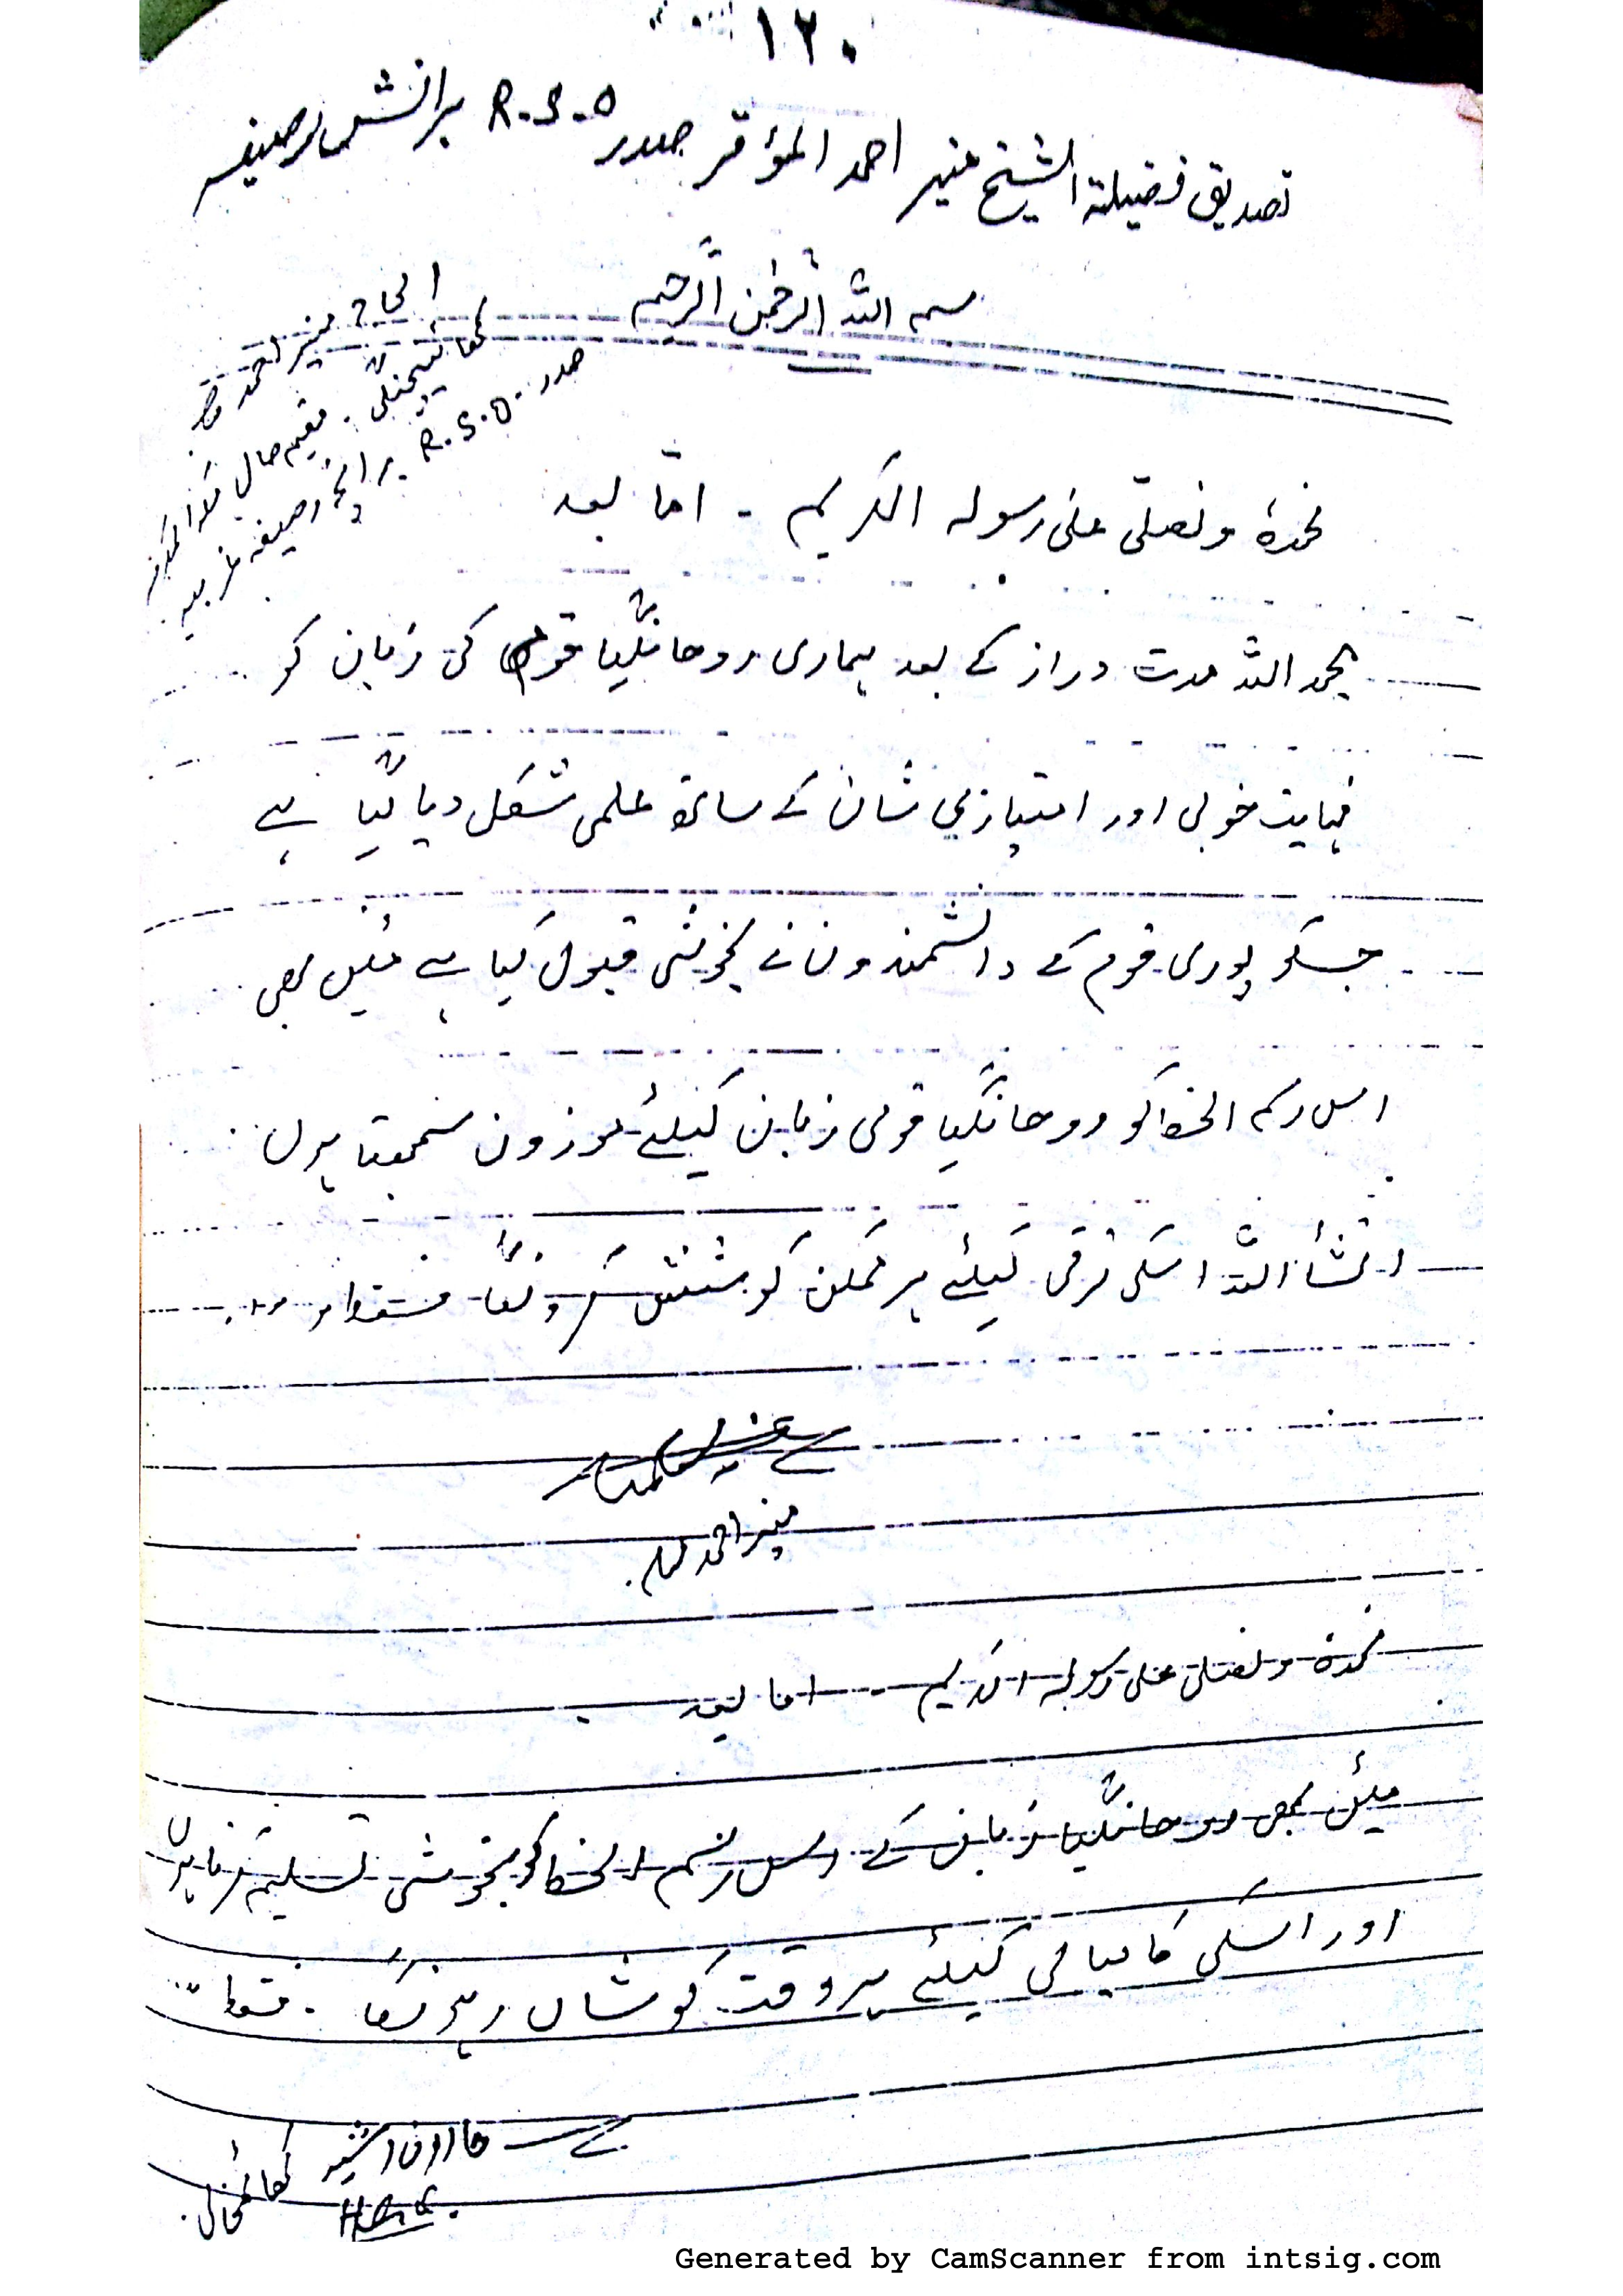 ١٢٠
تصدیق فضیلۃ الشیخ منیر احمد المؤقر صدر R.S.O برانش
بسم اللہ الرحمٰن الرحیم
الحاج منیر احمد
مقیم حال مکۃ المکرمہ
صدر R.S.O. برانچ
نحمدہٗ ونصلّی علیٰ رسولہ الکریم - امّا بعد
بحمد اللہ مدت دراز کے بعد ہماری روحانگیا قوم کی زبان کو
نہایت خوبی اور امتیازی شان کے ساتھ علمی شکل دیا گیا ہے
جسکو پوری قوم کے دانشمندون نے بخوشی قبول کیا ہے میں بھی
اس رسم الخط کو روحانگیا قومی زبان کیلئے موزون سمجھتا ہوں
انشأ اللہ اسکی ترقی کیلئے ہر ممکن کوشش کرونگا فقط
منیر احمد
نحمدہ ونصلی علی رسولہ الکریم - اما بعد
میں بھی روحانگیا زبان کے اس رسم الخط کو بخوشی تسلیم کرتا ہوں
اور اسکی کامیابی کیلئے ہر وقت کوشاں رہونگا . فقط
ہارون رشید
Generated by CamScanner from intsig.com